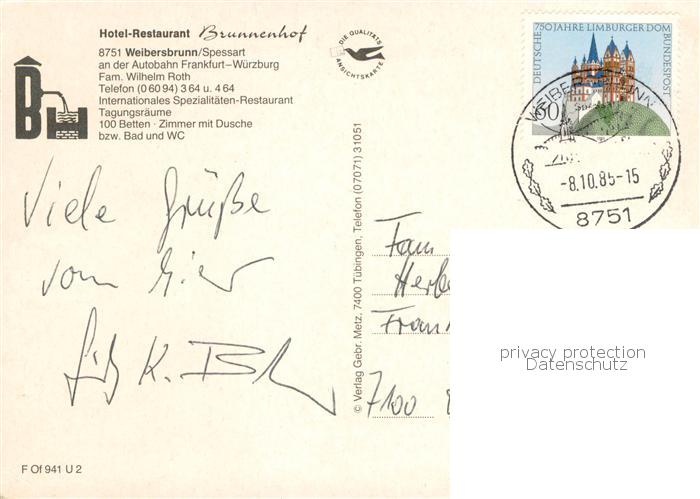 Hotel-Restaurant Brunnenhof
8751 Weibersbrunn/Spessart
an der Autobahn Frankfurt–Würzburg
Fam. Wilhelm Roth
Telefon (0 60 94) 3 64 u. 4 64
Internationales Spezialitäten-Restaurant
Tagungsräume
100 Betten · Zimmer mit Dusche
bzw. Bad und WC
B
DIE QUALITÄTS
ANSICHTSKARTE
750 JAHRE LIMBURGER DOM
DEUTSCHE
BUNDESPOST
60
-8.10.85-15
8751
Viele Grüße
vom hier
K.
© Verlag Gebr. Metz, 7400 Tübingen, Telefon (07071) 31051
Fam
Herbe
Fran
7100
privacy protection
Datenschutz
F Of 941 U 2